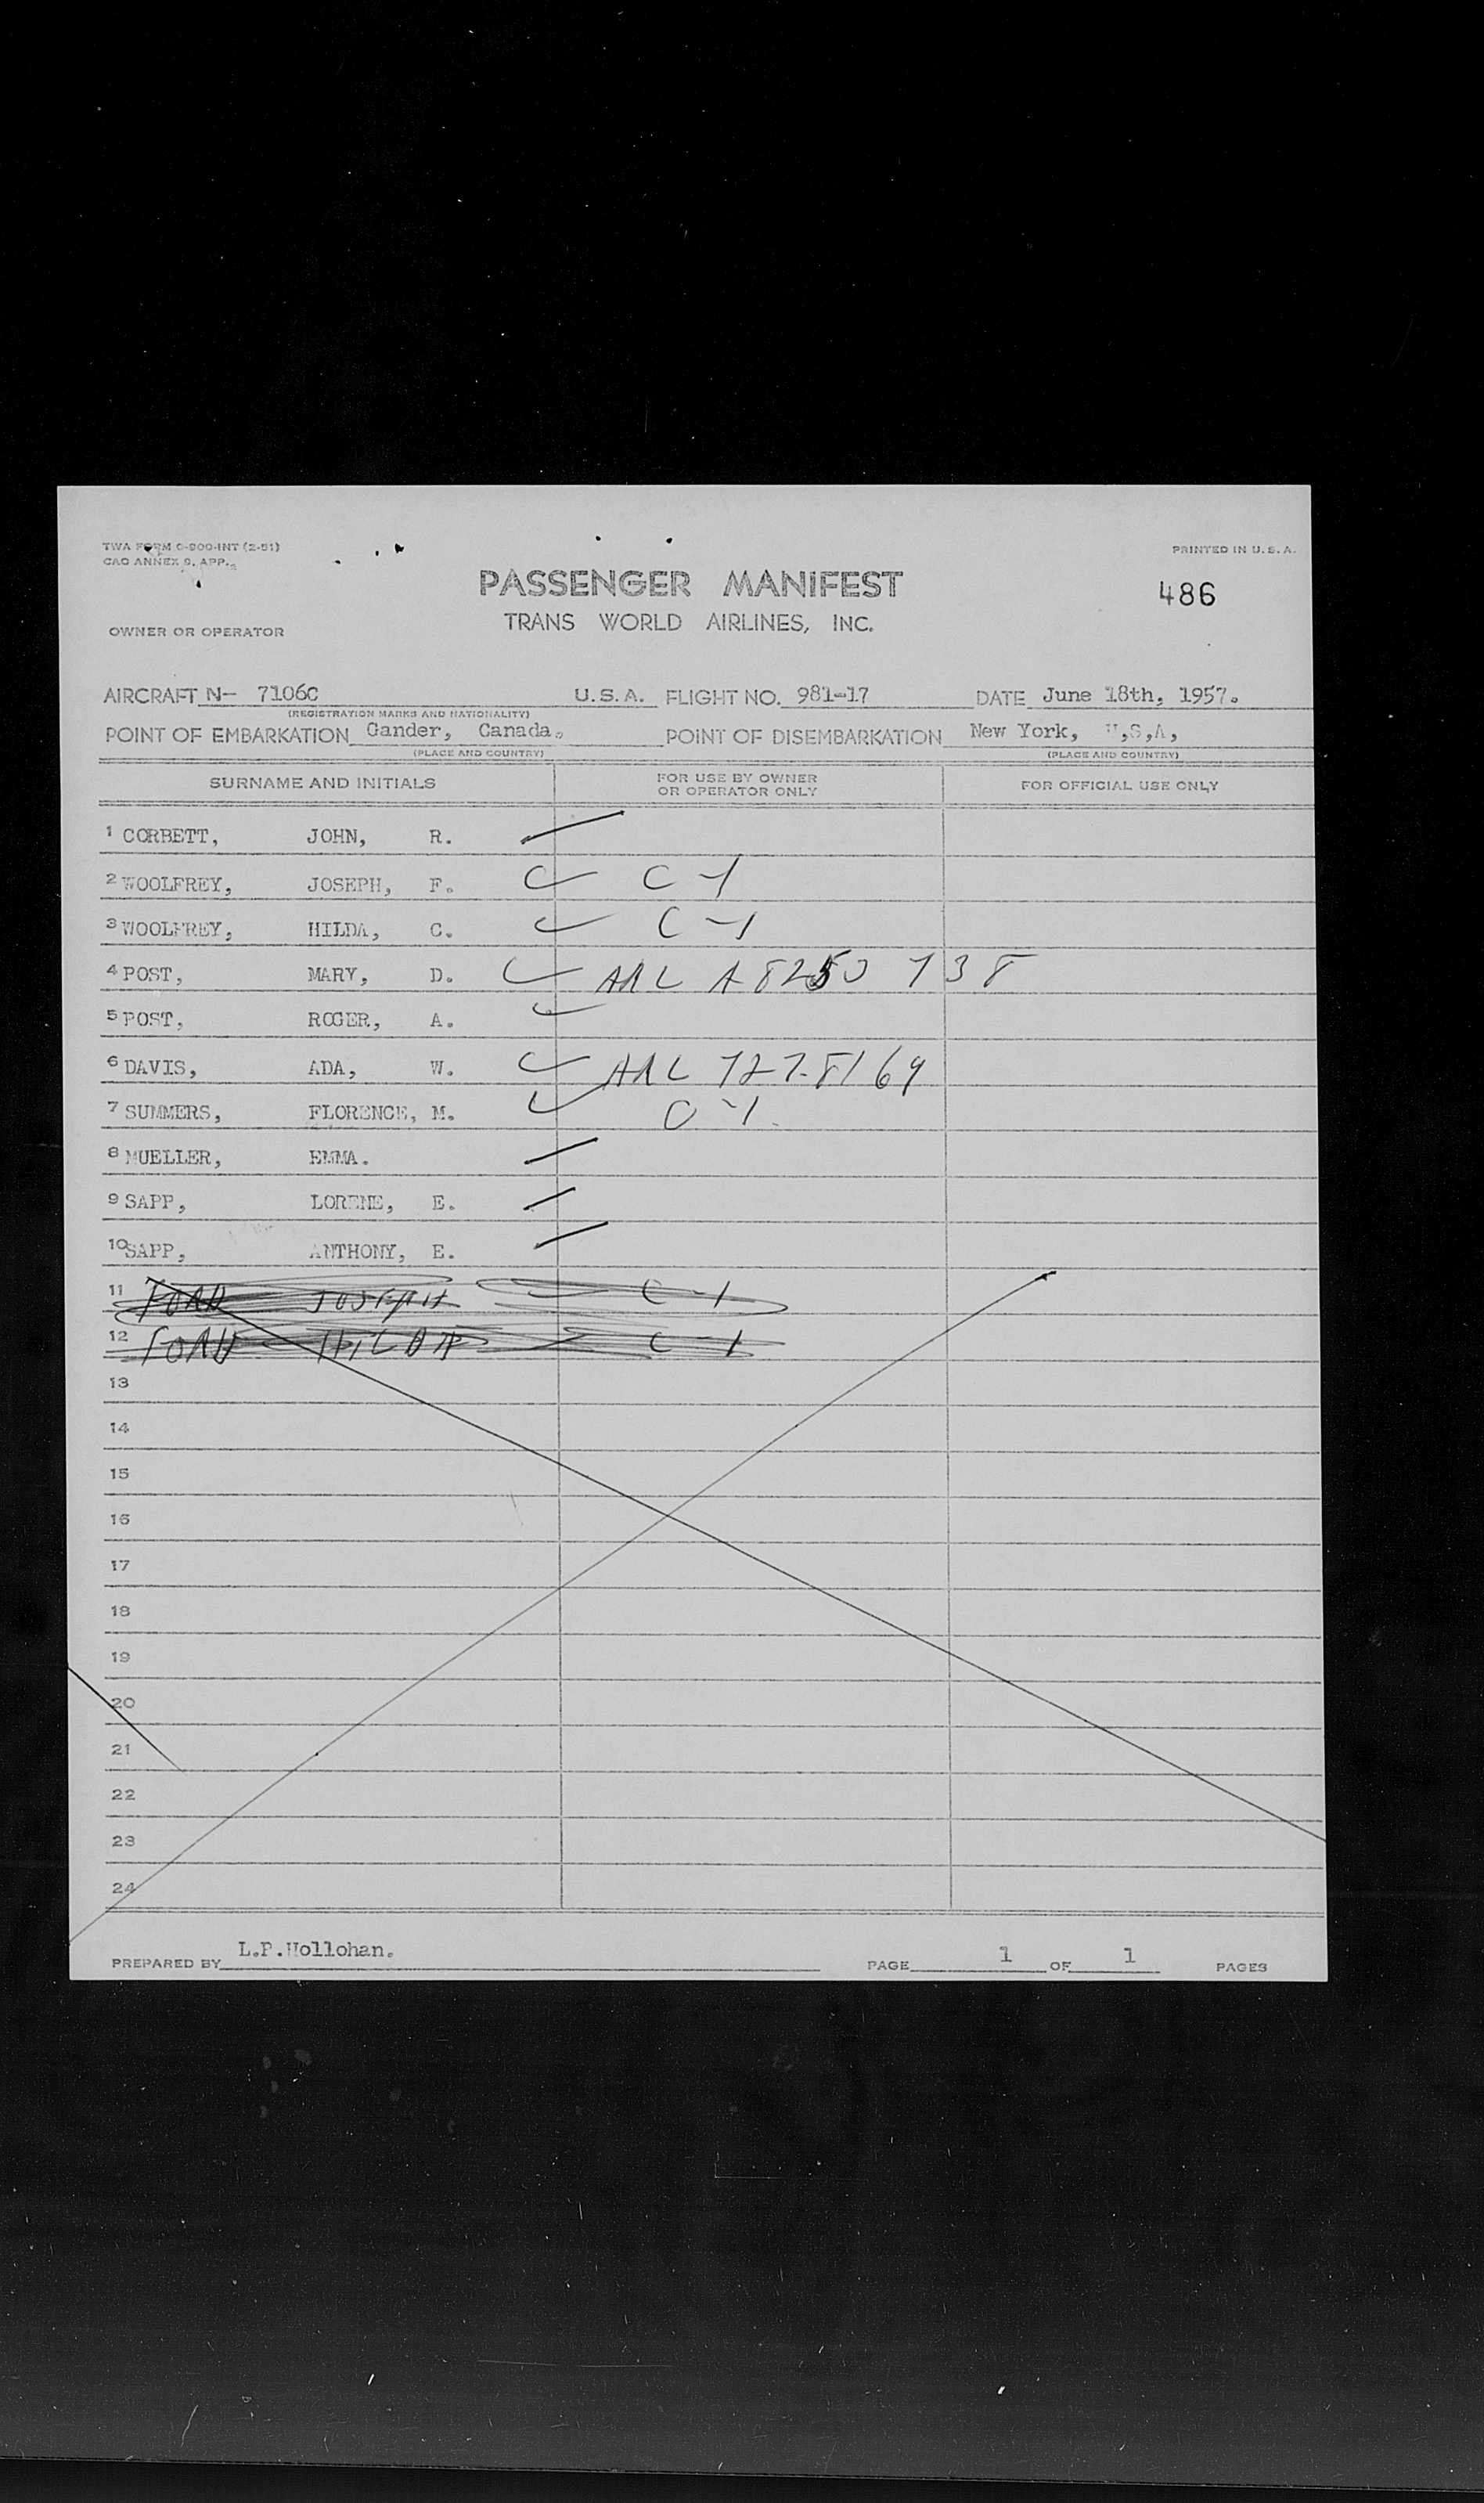 TWA FORM 0-900-INT (2-51)
CAO ANNEX 9, APP.
PRINTED IN U. S. A.
PASSENGER MANIFEST
486
TRANS WORLD AIRLINES, INC.
OWNER OR OPERATOR
AIRCRAFT N- 7106C U.S.A. FLIGHT NO. 981-17 DATE June 18th, 1957.
(REGISTRATION MARKS AND NATIONALITY)
POINT OF EMBARKATION Gander, Canada. POINT OF DISEMBARKATION New York, U,S,A,
(PLACE AND COUNTRY) (PLACE AND COUNTRY)
SURNAME AND INITIALS FOR USE BY OWNER OR OPERATOR ONLY FOR OFFICIAL USE ONLY
1 CORBETT, JOHN, R.
2 WOOLFREY, JOSEPH, F. C-1
3 WOOLFREY, HILDA, C. C-1
4 POST, MARY, D. ARC A8250 738
5 POST, ROGER, A.
6 DAVIS, ADA, W. ARC 7278169
7 SUMMERS, FLORENCE, M. C-1
8 MUELLER, EMMA.
9 SAPP, LORENE, E.
10 SAPP, ANTHONY, E.
11 JOSEPH C-1
12 HILDA C-1
13
14
15
16
17
18
19
20
21
22
23
24
PREPARED BY L.P.Hollohan. PAGE 1 OF 1 PAGES